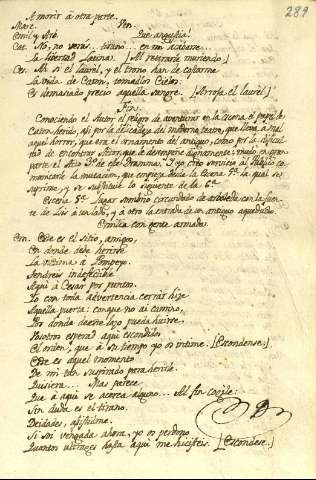 289
A morir à otra parte.
Marc. Ven.
Emil. y Arb. Que angustia!
Cat. No, no veràs... tirano... en mi acabarse
La libertad Latina. [Al retirarse muriendo.]
Ces. Ah! si el laurel, y el trono, han de costarme
La vida de Caton, tomadlos Cielos.
Es demasiado precio aquella sangre. [Arroja el laurel.]
Fin.
Conociendo el Autor el peligro de aventurar en la escena el papel de
Caton herido, asi por la delicadeza del moderno teatro, que lleva à mal
aquel horror, que era el ornamento del antiguo; como por la dificul-
tad de encontrar Actor que le desempeñe dignamente: mudò en gran
parte el Acto 3.º de este Dramma. Y yo creo servicio al Publico co-
municarle la mutacion, que empieza desde la Escena 5.ª la qual se
suprime, y se substituie lo siguiente de la 6.ª
Escena 5.ª Lugar sombrio circundado de arboleda con la fuen-
te de Isis à un lado, y à otro la entrada de un antiguo aqueducto.
Emilia con gente armada.
Em. Este es el sitio, amigos,
En donde debe herirse
La victima à Pompeyo.
Tendreis indefectible
Aqui à Cesar por puntos.
Yo con toda advertencia cerrar hize
Aquella puerta: conque no ai camino,
Por donde desde luego pueda huirse.
Vosotros esperad aqui escondidos
El orden, que à su tiempo yo os intime. [Escondense.]
Este es aquel momento
De mi tan suspirado para herirle.
Quisiera... Mas parece,
Que à aqui se acerca alguno... Al fin cogile:
Sin duda es el tirano.
Deidades, asistidme.
Si soi vengada ahora, yo os perdono
Quantos ultrages hasta aqui me hicisteis. [Escondese.]